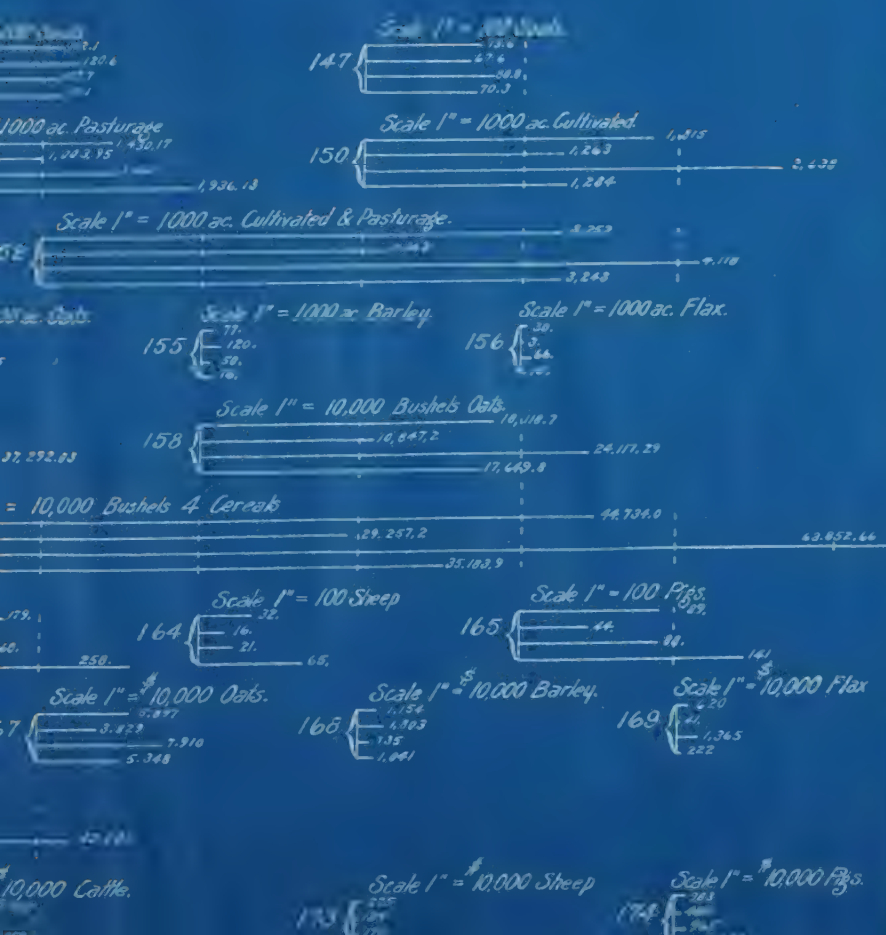 Scale 1" = 100
2.1
120.6
147
73.6
67.6
88.8
70.3
1000 ac. Pasturage
1,430.17
1,003.95
1,936.13
Scale 1" = 1000 ac. Cultivated.
150
1,815
1,263
2,638
1,284
Scale 1" = 1000 ac. Cultivated & Pasturage.
4,118
3,243
ac. Oats.
Scale 1" = 1000 ac. Barley.
155
77.
120.
58.
Scale 1" = 1000 ac. Flax.
156
38.
3.
66.
Scale 1" = 10,000 Bushels Oats.
158
10,847,2
24,117,29
17,649.8
37,292.03
= 10,000 Bushels 4 Cereals
44,734.0
29,257,2
63,852,66
35,183,9
179.
258.
Scale 1" = 100 Sheep
164
32.
16.
21.
65.
Scale 1" = 100 Pigs.
165
89.
44.
88.
141
Scale 1" = $10,000 Oats.
7
3.829
7.910
5.348
Scale 1" = $10,000 Barley.
168
1,154
1,803
735
1,041
Scale 1" = $10,000 Flax
169
620
1,365
222
$10,000 Cattle.
Scale 1" = $10,000 Sheep
173
Scale 1" = $10,000 Pigs.
174